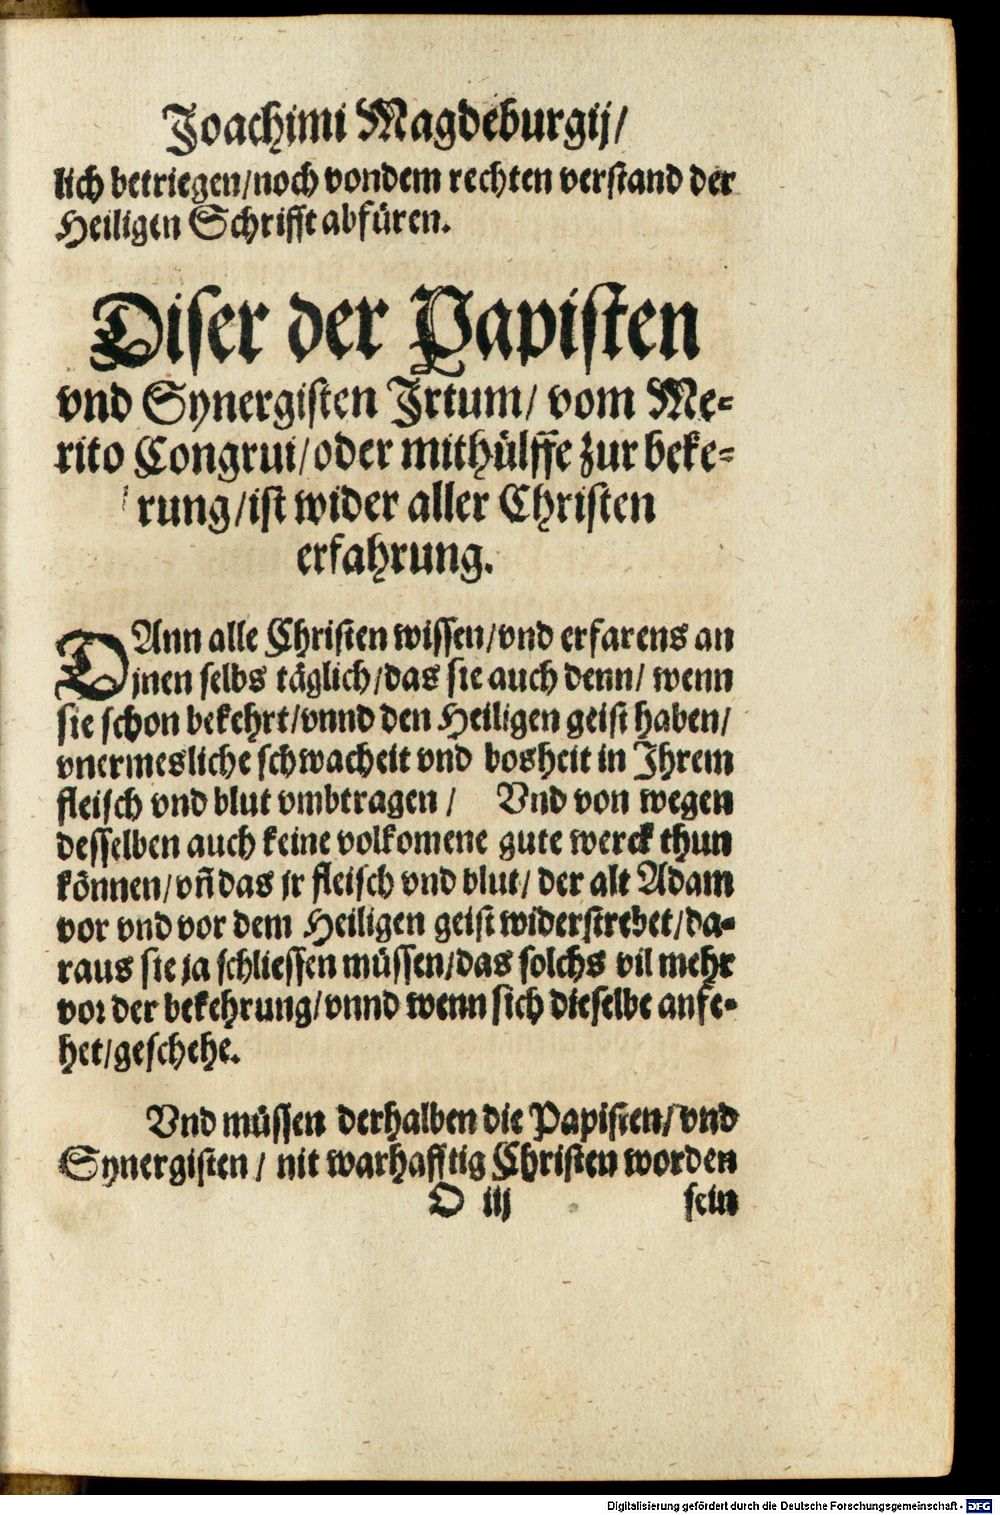 Joachimi Magdeburgij/
lich betriegen/noch vondem rechten verstand der
Heiligen Schrifft abfüren.
Diser der Papisten
vnd Synergisten Irtum/ vom Me=
rito Congrui/oder mithülffe zur beke=
rung/ist wider aller Christen
erfahrung.
DAnn alle Christen wissen/vnd erfarens an
jnen selbs täglich/das sie auch denn/ wenn
sie schon bekehrt/vnnd den Heiligen geist haben/
vnermesliche schwacheit vnd bosheit in Ihrem
fleisch vnd blut vmbtragen/ Vnd von wegen
desselben auch keine volkomene gute werck thun
können/vn̄ das jr fleisch vnd blut/ der alt Adam
vor vnd vor dem Heiligen geist widerstrebet/da=
raus sie ja schliessen müssen/das solchs vil mehr
vor der bekehrung/vnnd wenn sich dieselbe anfe=
het/geschehe.
Vnd müssen derhalben die Papisten/vnd
Synergisten/ nit warhafftig Christen worden
O iij sein
Digitalisierung gefördert durch die Deutsche Forschungsgemeinschaft - DFG